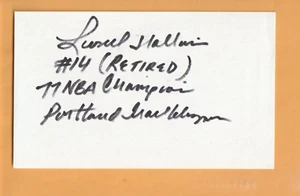 Lionel Hollins
#14 (RETIRED)
77 NBA Champion
Portland Trailblazers